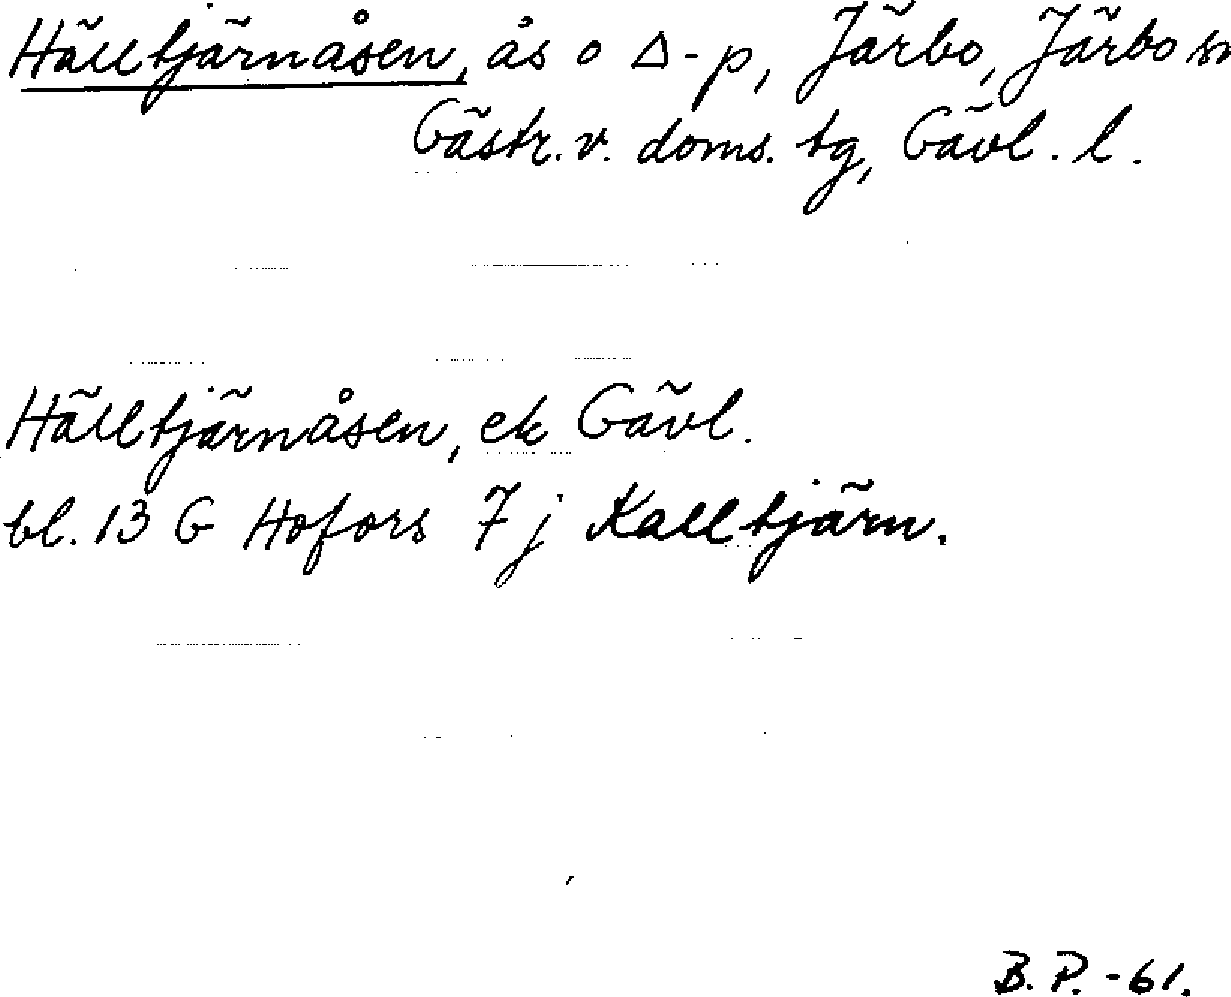 Hälltjärnåsen, ås o Δ-p, Järbo, Järbo sn
Gästr. v. doms. tg, Gävl. l.
Hälltjärnåsen, ek Gävl.
bl. 13 G Hofors 7 j Kalltjärn.
B. P. -61.